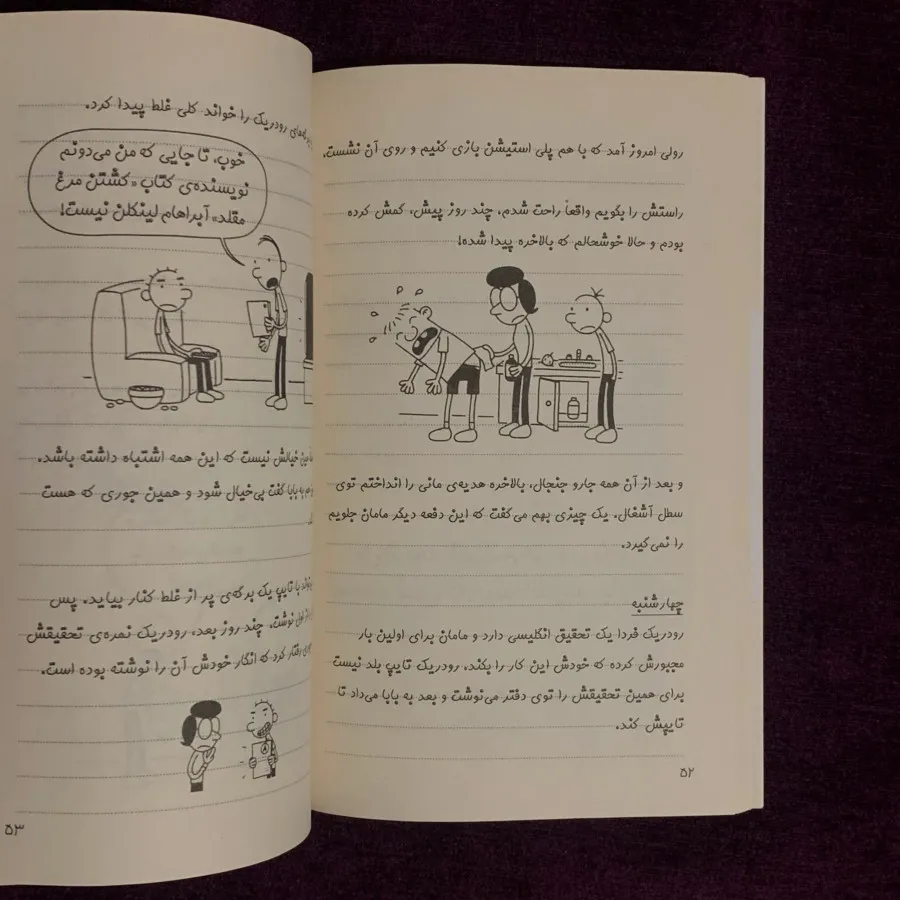 رولی امروز آمد که با هم پلی استیشن بازی کنیم و روی آن نشست.
راستش را بگویم واقعاً راحت شدم، چند روز پیش، گمش کرده
بودم و حالا خوشحالم که بالاخره پیدا شده!
و بعد از آن همه جارو جنجال، بالاخره هدیه‌ی مانی را انداختم توی
سطل آشغال. یک چیزی بهم می‌گفت که این دفعه دیگر مامان جلویم
را نمی‌گیرد.
چهارشنبه
رودریک فردا یک تحقیق انگلیسی دارد و مامان برای اولین بار
مجبورش کرده که خودش این کار را بکند. رودریک تایپ بلد نیست
برای همین تحقیقش را توی دفتر می‌نوشت و بعد به بابا می‌داد تا
تایپش کند.
۵۲
رودریک را خواند کلی غلط پیدا کرد.
خوب، تا جایی که من می‌دونم
نویسنده‌ی کتاب «کشتن مرغ
مقلد» آبراهام لینکلن نیست!
خیالش نیست که این همه اشتباه داشته باشد.
به بابا گفت بی‌خیال شود و همین جوری که هست
با تایپ یک برگه‌ی پر از غلط کنار بیاید. پس
نوشت. چند روز بعد، رودریک نمره‌ی تحقیقش
رفتار کرد که انگار خودش آن را نوشته بوده است.
۵۳